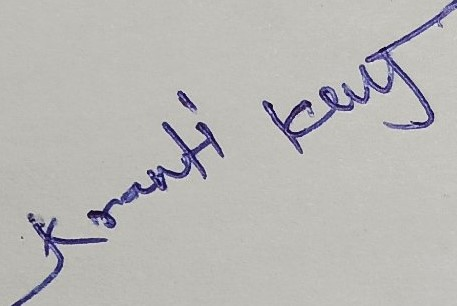 Kranti Keny